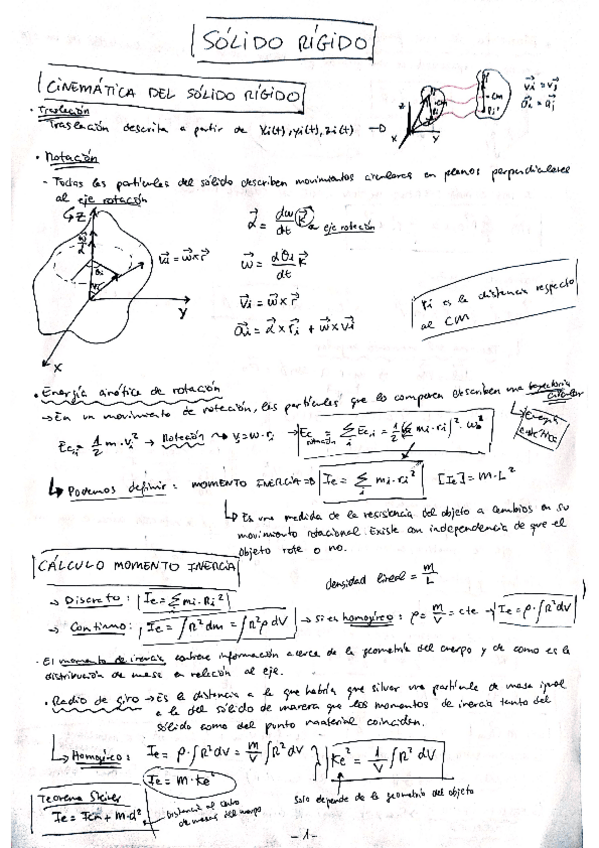 SÓLIDO RÍGIDO
CINEMÁTICA DEL SÓLIDO RÍGIDO
· Traslación
Traslación descrita a partir de xi(t), yi(t), zi(t) →
z
x
y
CM
CM
v⃗i = v⃗j
a⃗i = a⃗j
· Rotación
- Todas las partículas del sólido describen movimientos circulares en planos perpendiculares
al eje rotación
Z
Y
X
v⃗i = w⃗ x r⃗
α⃗ = dw/dt k⃗ → eje rotación
w⃗ = dθi/dt k⃗
v⃗i = w⃗ x r⃗
a⃗i = α⃗ x r⃗i + w⃗ x v⃗i
ri es la distancia respecto
al CM
· Energía cinética de rotación
→ En un movimiento de rotación, las partículas que lo componen describen una trayectoria
circular
Eci = 1/2 m·vi² → Rotación → vi = w·ri → Ec rotación = Σi Ec,i = 1/2 (Σi mi·ri)²·w²
Energía
Podemos definir: MOMENTO INERCIA ⇒ Ie = Σi mi·ri² [Ie] = M·L²
Es una medida de la resistencia del objeto a cambios en su
movimiento rotacional. Existe con independencia de que el
objeto rote o no.
CÁLCULO MOMENTO INERCIA
densidad lineal = m/L
→ Discreto: Ie = Σ mi·Ri²
→ Continuo: Ie = ∫R²dm = ∫R²ρdV → Si es homogéneo: ρ = m/V = cte → Ie = ρ·∫R²dV
· El momento de inercia contiene información acerca de la geometría del cuerpo y de como es la
distribución de masa en relación al eje.
· Radio de giro → Es la distancia a la que habría que situar una partícula de masa igual
a la del sólido de manera que los momentos de inercia tanto del
sólido como del punto material coinciden.
Homogéneo: Ie = ρ·∫R²dV = m/V ∫R²dV } Ke² = 1/V ∫R²dV
Ie = m·Ke²
Solo depende de la geometría del objeto
Teorema Steiner
Ie = Icm + M·d²
Distancia al centro
de masas del cuerpo
- 1 -